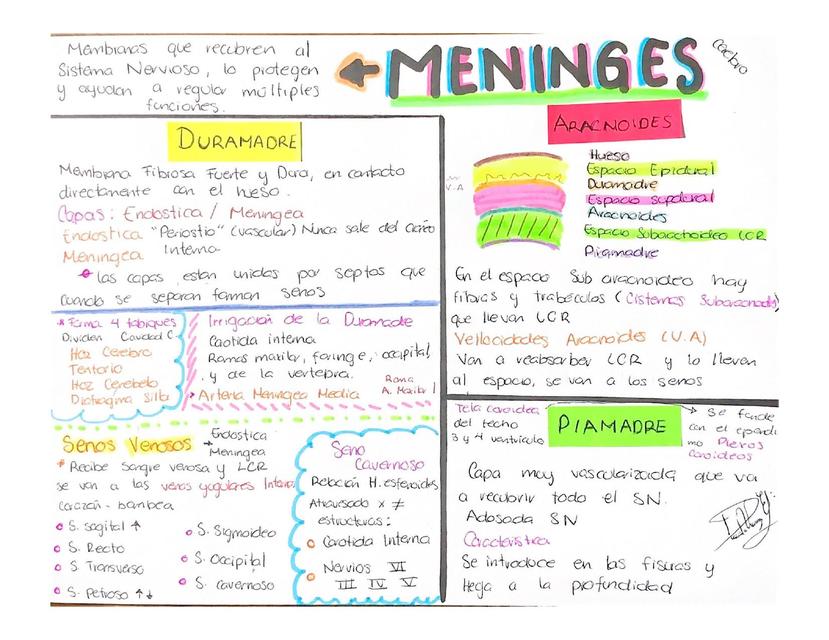 MENINGES
cerebro
Membranas que recubren al
Sistema Nervioso, lo protegen
y ayudan a regular múltiples
funciones.
DURAMADRE
Membrana Fibrosa Fuerte y Dura, en contacto
directamente con el hueso.
Capas: Endostica / Meningea
Endostica "Periostio" (vascular) Nunca sale del
Meningea Interna
las capas estan unidas por septos que
cuando se separan forman senos
* Forma 4 tabiques
Dividen Cavidad C.
Hoz Cerebro
Tentorio
Hoz Cerebelo
Diafragma Silla
Irrigación de la Duramadre
Carotida interna
Ramas maxilar, faringe, occipital
y de la vertebra.
Arteria Meningea Media
Rama
A. Maxilar I
Senos Venosos → Endostica
Meningea
* Recibe sangre venosa y LCR
se van a las venas yugulares Interna
corazón - bombea
S. sagital ↑
S. Recto
S. Transverso
S. Petroso ↑↓
S. Sigmoideo
S. Occipital
S. cavernoso
Seno
Cavernoso
Relación H. esfenoides
Atravesado x ≠
estructuras:
Carotida Interna
Nervios VI
III IV V
ARACNOIDES
V-A
Hueso
Espacio Epidural
Duramadre
Espacio supdural
Aracnoides
Espacio Subaracnoideo LCR
Piamadre
En el espacio Sub aracnoideo hay
fibras y trabéculas (Cisternas Subaracnoids)
que llevan LCR
Vellocidades Aracnoides (V.A)
Van a reabsorber LCR y lo llevan
al espacio, se van a los senos
Tela coroidea
del techo
3 y 4 ventriculo
PIAMADRE
→ Se funde
con el ependi
mo Plexos
Coroideos
Capa muy vascularizada que va
a recubrir todo el SN.
Adosada SN
Caracteristica
Se introduce en las fisuras y
llega a la profundidad